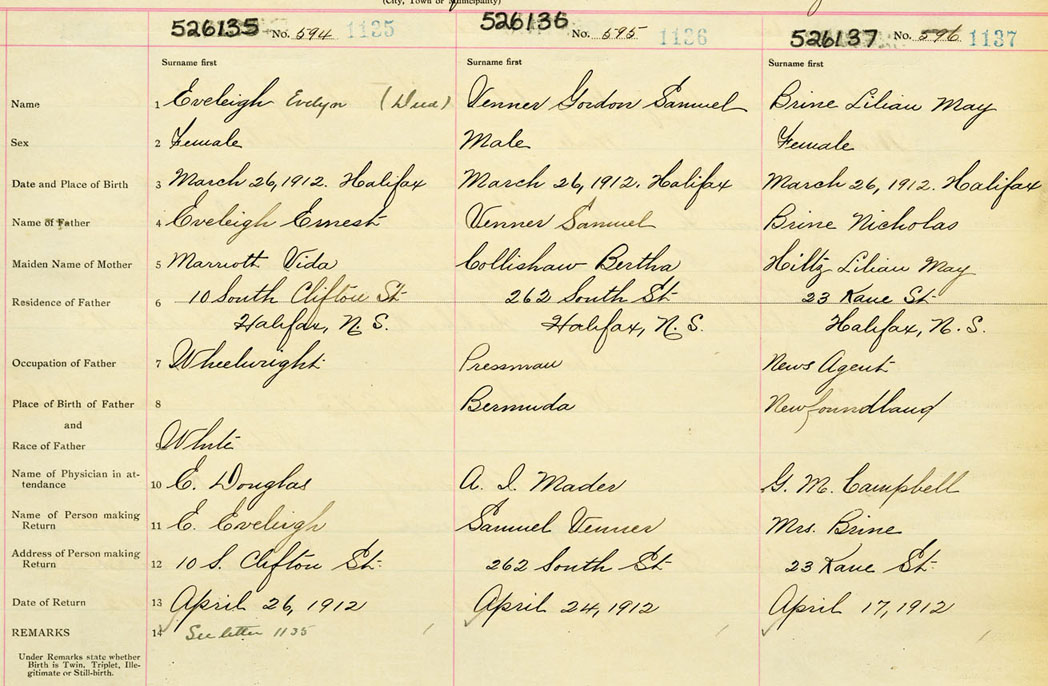 (City, Town or Municipality)
526135 No. 594 1135 526136 No. 595 1136 526137 No. 596 1137
Surname first Surname first Surname first
Name 1 Eveleigh Evelyn (Died) Venner Gordon Samuel Brine Lilian May
Sex 2 Female Male Female
Date and Place of Birth 3 March 26, 1912. Halifax March 26, 1912. Halifax March 26, 1912. Halifax
Name of Father 4 Eveleigh Ernest Venner Samuel Brine Nicholas
Maiden Name of Mother 5 Marriott Vida Collishaw Bertha Hiltz Lilian May
Residence of Father 6 10 South Clifton St. 262 South St. 23 Kane St.
Halifax, N.S. Halifax, N.S. Halifax, N.S.
Occupation of Father 7 Wheelwright Pressman News Agent
Place of Birth of Father 8 Bermuda Newfoundland
and
Race of Father 9 White
Name of Physician in at-
tendance 10 E. Douglas A. I. Mader G. M. Campbell
Name of Person making
Return 11 E. Eveleigh Samuel Venner Mrs. Brine
Address of Person making
Return 12 10 S. Clifton St. 262 South St. 23 Kane St.
Date of Return 13 April 26, 1912 April 24, 1912 April 17, 1912
REMARKS 14 See letter 1135
Under Remarks state whether
Birth is Twin, Triplet, Ille-
gitimate or Still-birth.